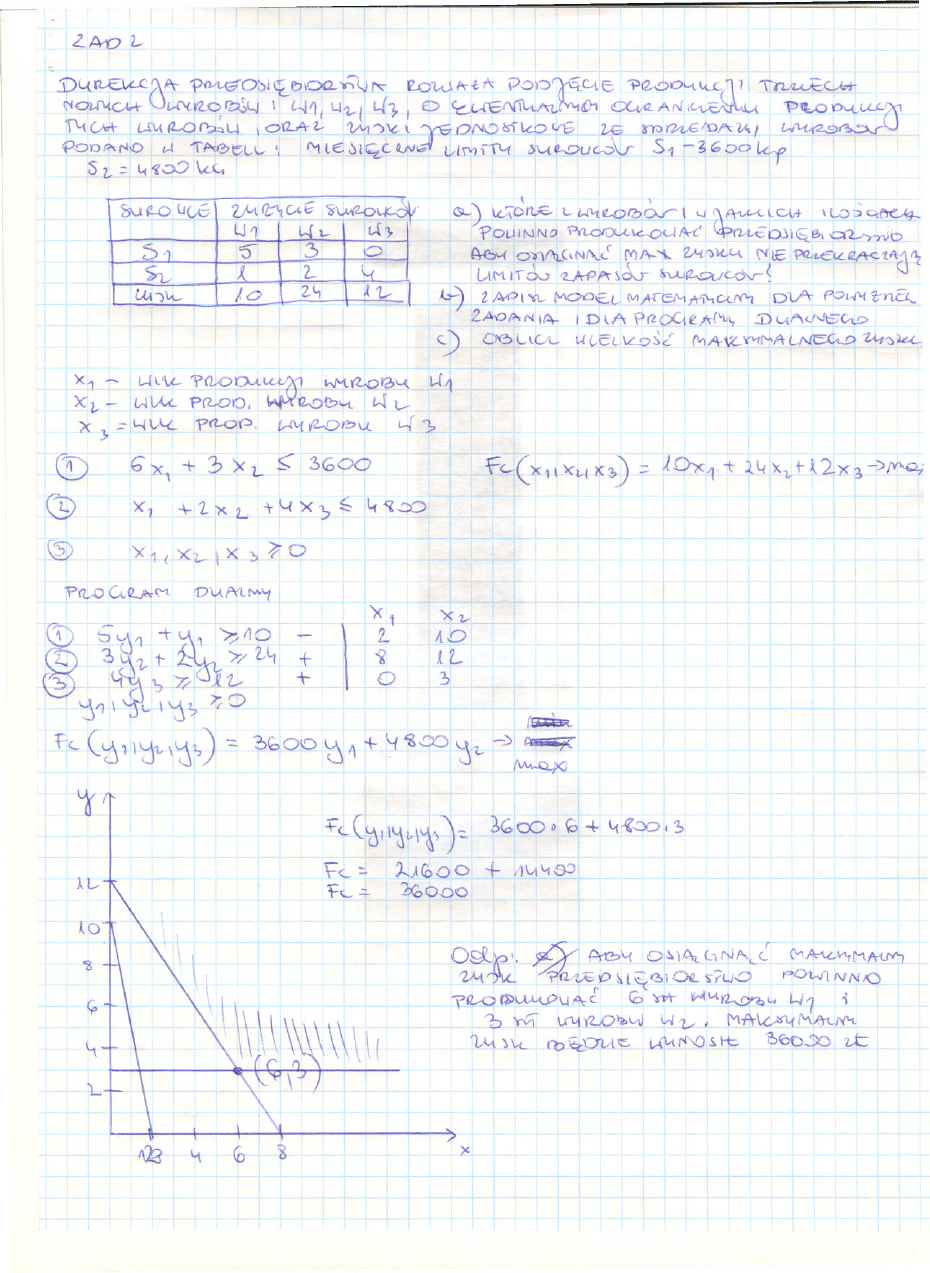 ZAD 2
DYREKCJA PRZEDSIĘBIORSTWA ROZWAŻA PODJĘCIE PRODUKCJI TRZECH
NOWYCH WYROBÓW: W1, W2, W3, O EWENTUALNYM OGRANICZENIU PRODUKCJI
TYCH WYROBÓW, ORAZ ZYSKI JEDNOSTKOWE ZE SPRZEDAŻY WYROBÓW
PODANO W TABELI: MIESIĘCZNE LIMITY SUROWCÓW S1-3600kg
S2=4800 KG
SUROWCE ZUŻYCIE SUROWCÓW
W1 W2 W3
S1 5 3 0
S2 1 2 4
ZYSK 10 24 12
a) KTÓRE Z WYROBÓW I W JAKICH ILOŚCIACH
POWINNO PRODUKOWAĆ PRZEDSIĘBIORSTWO
ABY OSIĄGNĄĆ MAX ZYSKU NIE PRZEKRACZAJĄC
LIMITÓW ZAPASÓW SUROWCÓW?
b) ZAPISZ MODEL MATEMATYCZNY DLA POWYŻSZEGO
ZADANIA I DLA PROGRAMU DUALNEGO
c) OBLICZ WIELKOŚĆ MAKSYMALNEGO ZYSKU
x1 - WLK PRODUKCJI WYROBU W1
x2 - WLK PROD. WYROBU W2
x3 = WLK PROD. WYROBU W3
① 6x1 + 3x2 ≤ 3600 Fc(x1,x2,x3) = 10x1+24x2+12x3→max
② x1 +2x2 +4x3 ≤ 4800
③ x1, x2, x3 ≥0
PROGRAM DUALNY
x1 x2
① 5y1 +y1 ≥10 - 2 10
② 3y2 + 2y2 ≥ 24 + 8 12
③ 4y3 ≥ 12 + 0 3
y1,y2,y3 ≥0
Fc(y1,y2,y3) = 3600y1+4800y2→
max
y
Fc(y1,y2,y3)= 3600·6+4800·3
Fc= 21600 + 14400
Fc= 36000
12
10
8
6
4
2
(6,3)
4 6 8
x
Odp: a) ABY OSIĄGNĄĆ MAKSYMALNY
ZYSK PRZEDSIĘBIORSTWO POWINNO
PRODUKOWAĆ 6 szt WYROBU W1 i
3 szt WYROBU W2. MAKSYMALNY
ZYSK BĘDZIE WYNOSIŁ 36000 zł